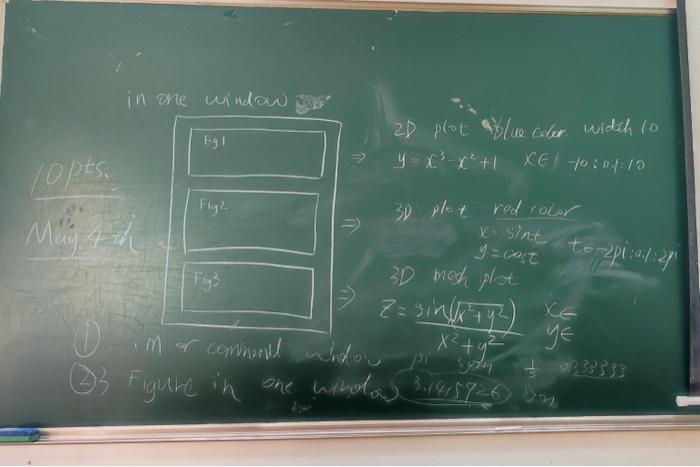 in one window
10 pts.
May 4th
Fig1
Fig2
Fig3
⇒ 2D plot blue color width 10
y = x³-x²+1 x∈ -10:0.1:10
⇒ 3D plot red color
x=sint
y=cost t∈-2pi:0.1:2pi
⇒ 3D mesh plot
Z = sin(√x²+y²) / x²+y² x∈ y∈
① .M or command window pi sym 1/3 0.333333
② 3 Figure in one window 3.1415926 sym